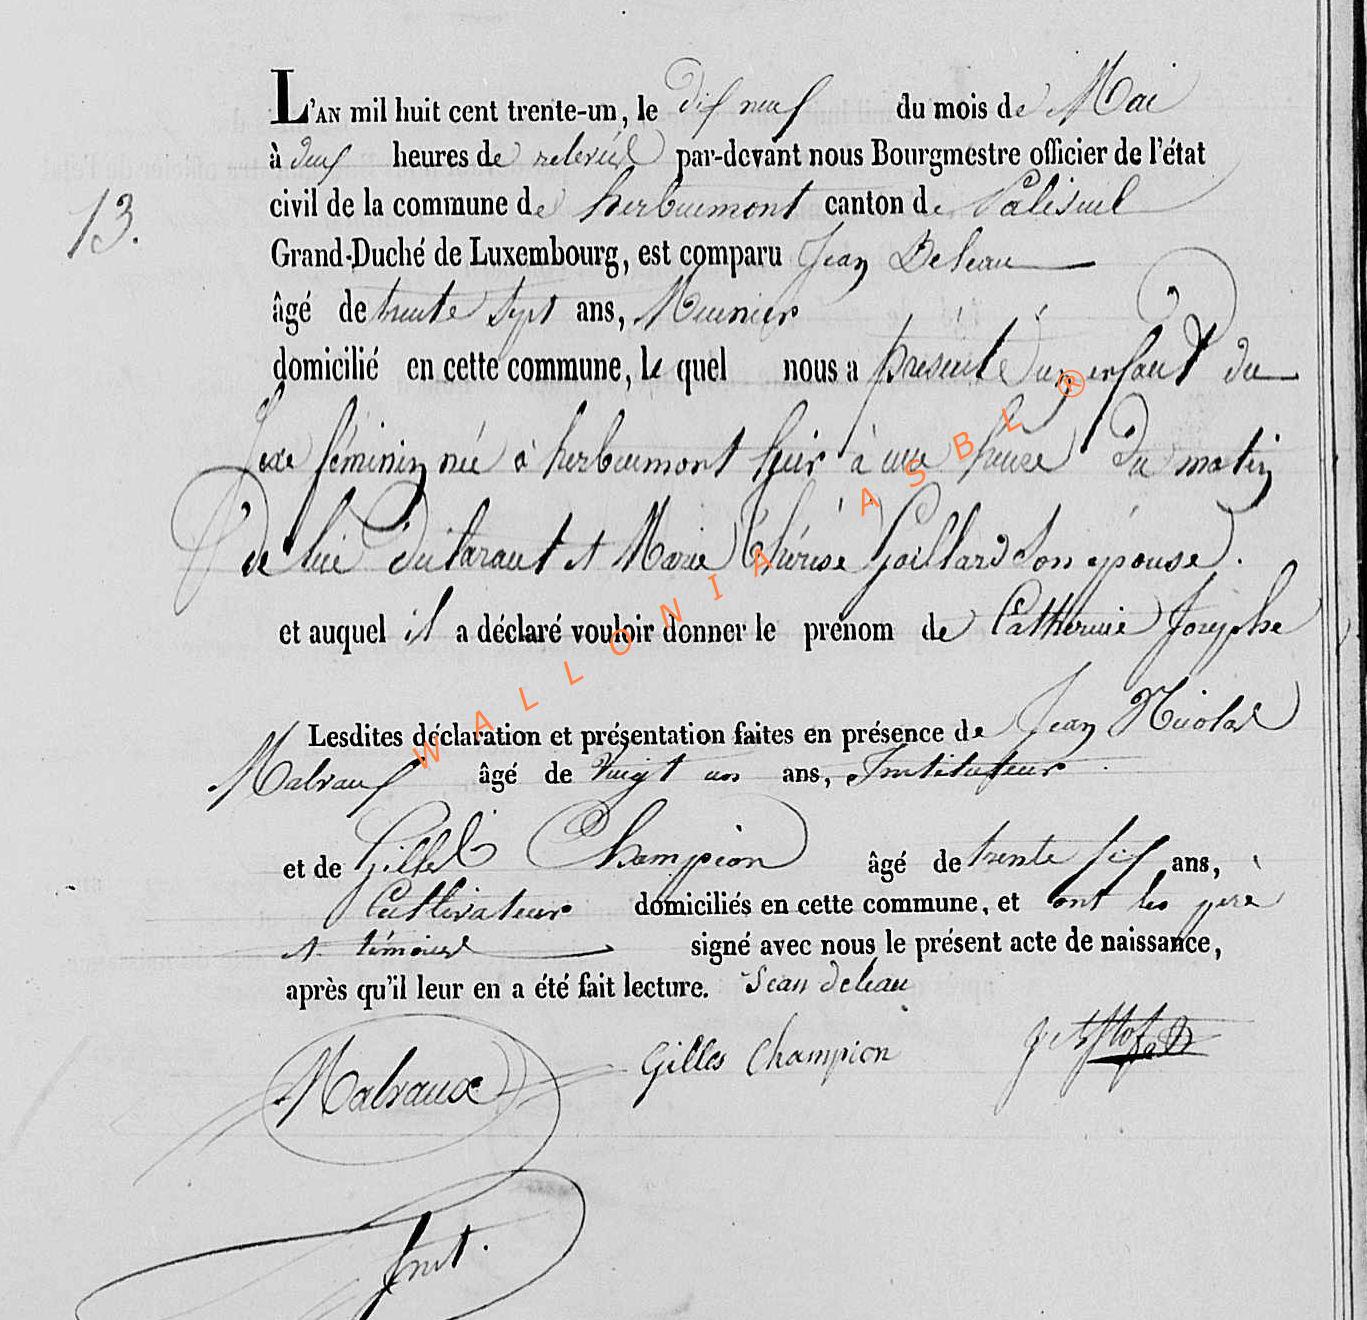 L'AN mil huit cent trente-un, le dix neuf du mois de Mai
à deux heures de relevée par-devant nous Bourgmestre officier de l'état
civil de la commune de herbeumont canton de Paliseul
13.
Grand-Duché de Luxembourg, est comparu Jean Deleau
âgé de trente sept ans, Meunier
domicilié en cette commune, le quel nous a présenté un enfant du
sexe féminin née à herbeumont hier à une heure du matin
de lui déclarant et Marie Thérèse Goillard son épouse.
et auquel il a déclaré vouloir donner le prénom de Catherine Josephe
Lesdites déclaration et présentation faites en présence de Jean Nicolas
Malraux âgé de vingt un ans, Instituteur
et de Gilles Champion âgé de trente six ans,
Cultivateur domiciliés en cette commune, et ont les père
et témoins signé avec nous le présent acte de naissance,
après qu'il leur en a été fait lecture. Jean deleau
Malraux Gilles Champion
Inst.
WALLONIA ASBL ®